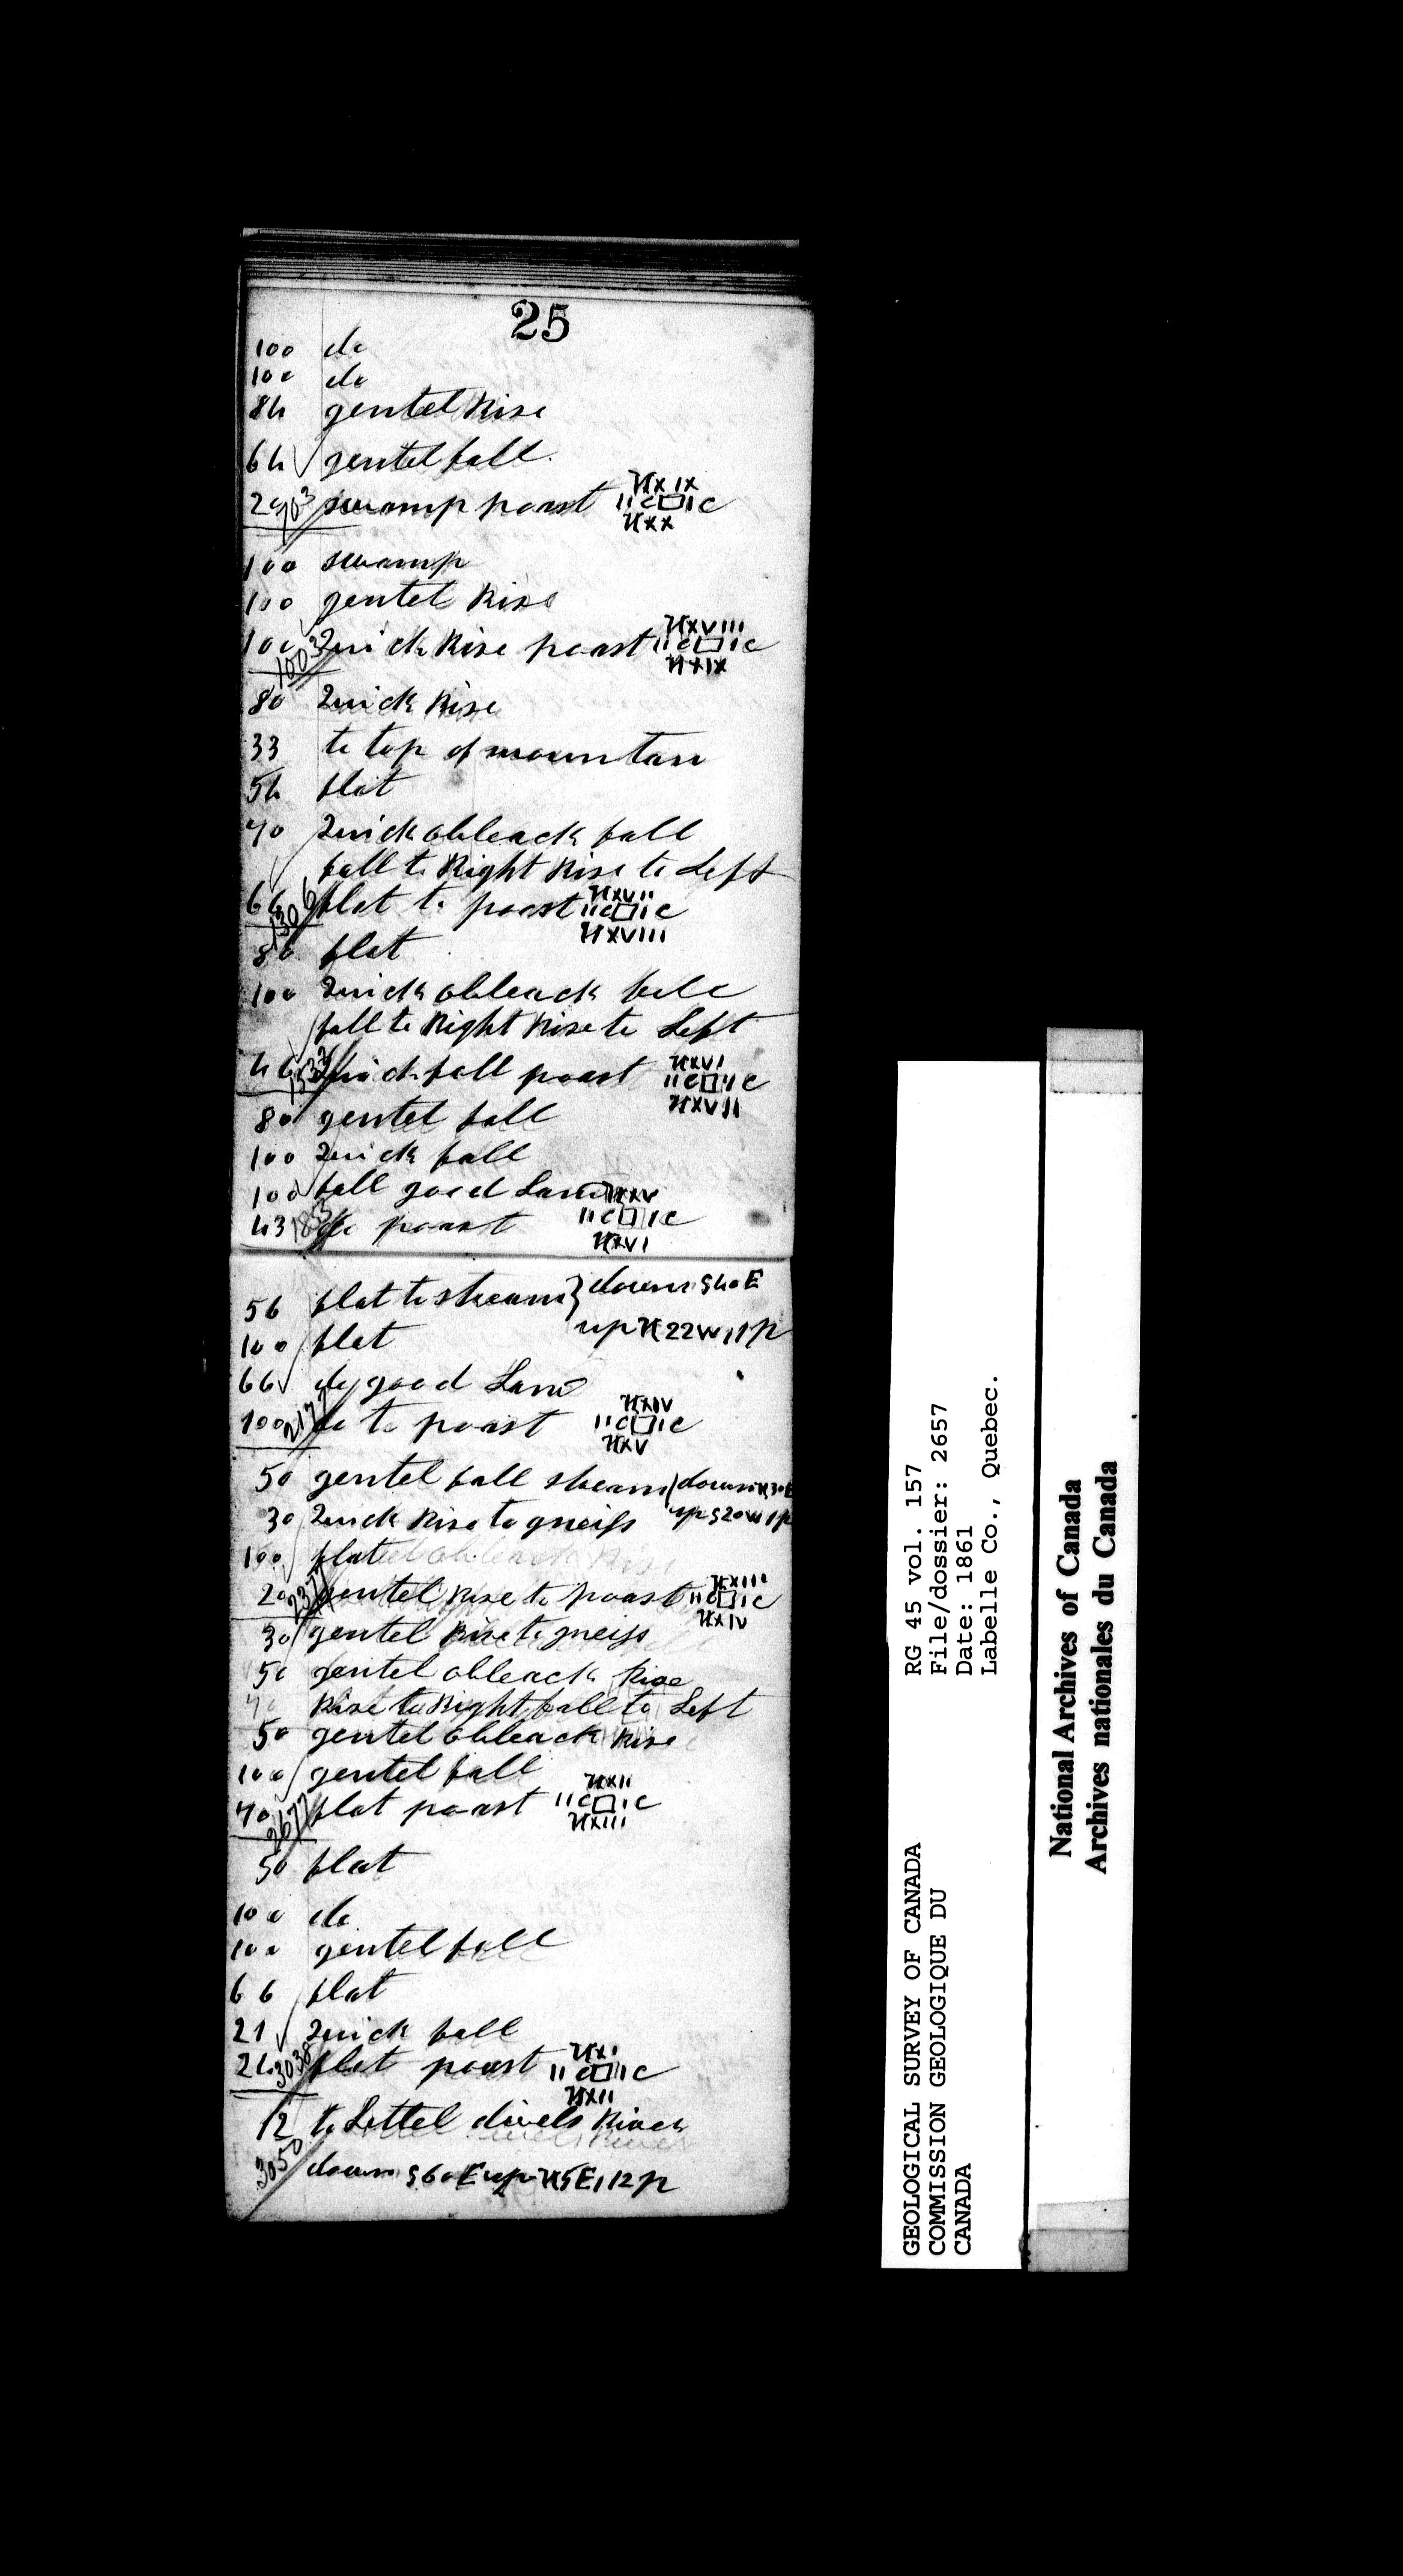 25
100 do
100 do
84 gentel Rise
64 gentel fall
20 703 swamp poast NXIX
11C□1C
NXX
100 swamp
100 gentel Rise
100 1003 Quick Rise poast NXVIII
11C□1C
NXIX
80 Quick Rise
33 to top of mountan
54 flat
70 Quick obleack fall
fall to Right Rise to Left
66 1306 flat to poast NXVII
11C□1C
NXVIII
80 flat
100 Quick obleack fall
fall to Right Rise to Left
46 1532 Quick fall poast NXVI
11C□11C
NXVII
80 gentel fall
100 Quick fall
100 fall good Land NXV
43 1855 do poast 11C□1C
NXVI
56 flat to stream } down S40E
100 flat up N22W, 1p
66 do good Land
100 2177 do to poast NXIV
11C□1C
NXV
50 gentel fall stream (down N30E
30 Quick Rise to gneiss up S20W 1p
100 flat
20 2377 gentel Rise to poast NXIII
11C□1C
NXIV
30 gentel Rise to gneiss
50 gentel obleack Rise
Rise to Right fall to Left
50 gentel obleack Rise
100 gentel fall
70 2677 flat poast NXII
11C□1C
NXIII
50 flat
100 do
100 gentel fall
66 flat
21 Quick fall
24 3038 flat poast NXI
11C□11C
NXII
12 to Littel divels River
3050 down S60E up N5E, 12p
GEOLOGICAL SURVEY OF CANADA
COMMISSION GEOLOGIQUE DU
CANADA
RG 45 vol. 157
File/dossier: 2657
Date: 1861
Labelle Co., Quebec.
National Archives of Canada
Archives nationales du Canada